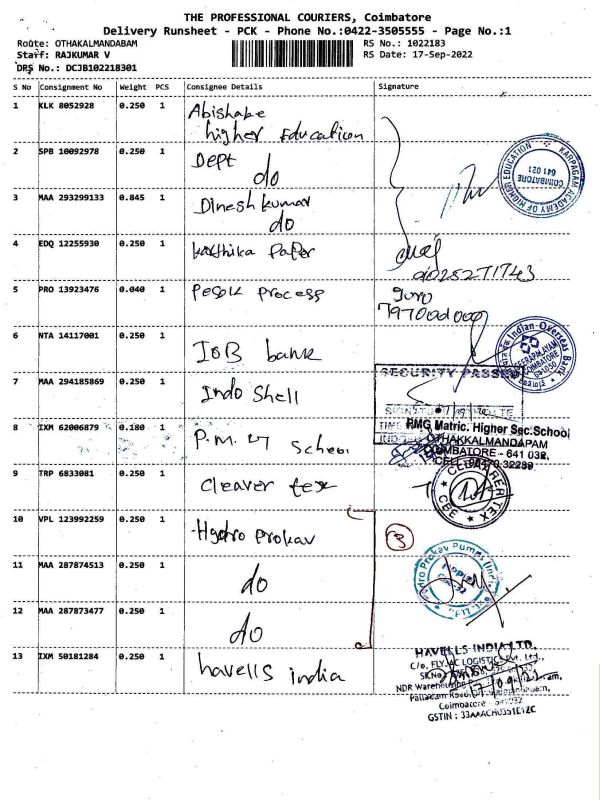 THE PROFESSIONAL COURIERS, Coimbatore
Delivery Runsheet - PCK - Phone No.:0422-3505555 - Page No.:1
Route: OTHAKALMANDABAM
RS No.: 1022183
Staff: RAJKUMAR V
RS Date: 17-Sep-2022
DRS No.: DCJB102218301
S No Consignment No Weight PCS Consignee Details Signature
1 KLK 8052928 0.250 1 Abishake
higher Education
2 SPB 10092978 0.250 1 Dept
do
KARPAGAM ACADEMY OF HIGHER EDUCATION
COIMBATORE
641 021
3 MAA 293299133 0.845 1 Dinesh kumar
do
4 EDQ 12255930 0.250 1 Karthika Paper
5 PRO 13923476 0.040 1 process
guru
6 NTA 14117001 0.250 1
IOB bank
Indian Overseas Bank
COIMBATORE
7 MAA 294185869 0.250 1 Indo Shell
SECURITY PASSED
8 IXM 62006879 0.180 1 School
RMG Matric. Higher Sec.School
OTHAKKALMANDAPAM
COIMBATORE - 641 032.
9 TRP 6833081 0.250 1 Cleaver tex
10 VPL 123992259 0.250 1 Hydro Prokav
3
11 MAA 287874513 0.250 1 do
Hydro Prokav Pumps (India)
12 MAA 287873477 0.250 1 do
13 IXM 50181284 0.250 1 havells india
HAVELLS INDIA LTD.
C/o. FLYJAC LOGISTICS Pvt. Ltd.
NDR Warehousing
17/09/22
Coimbatore